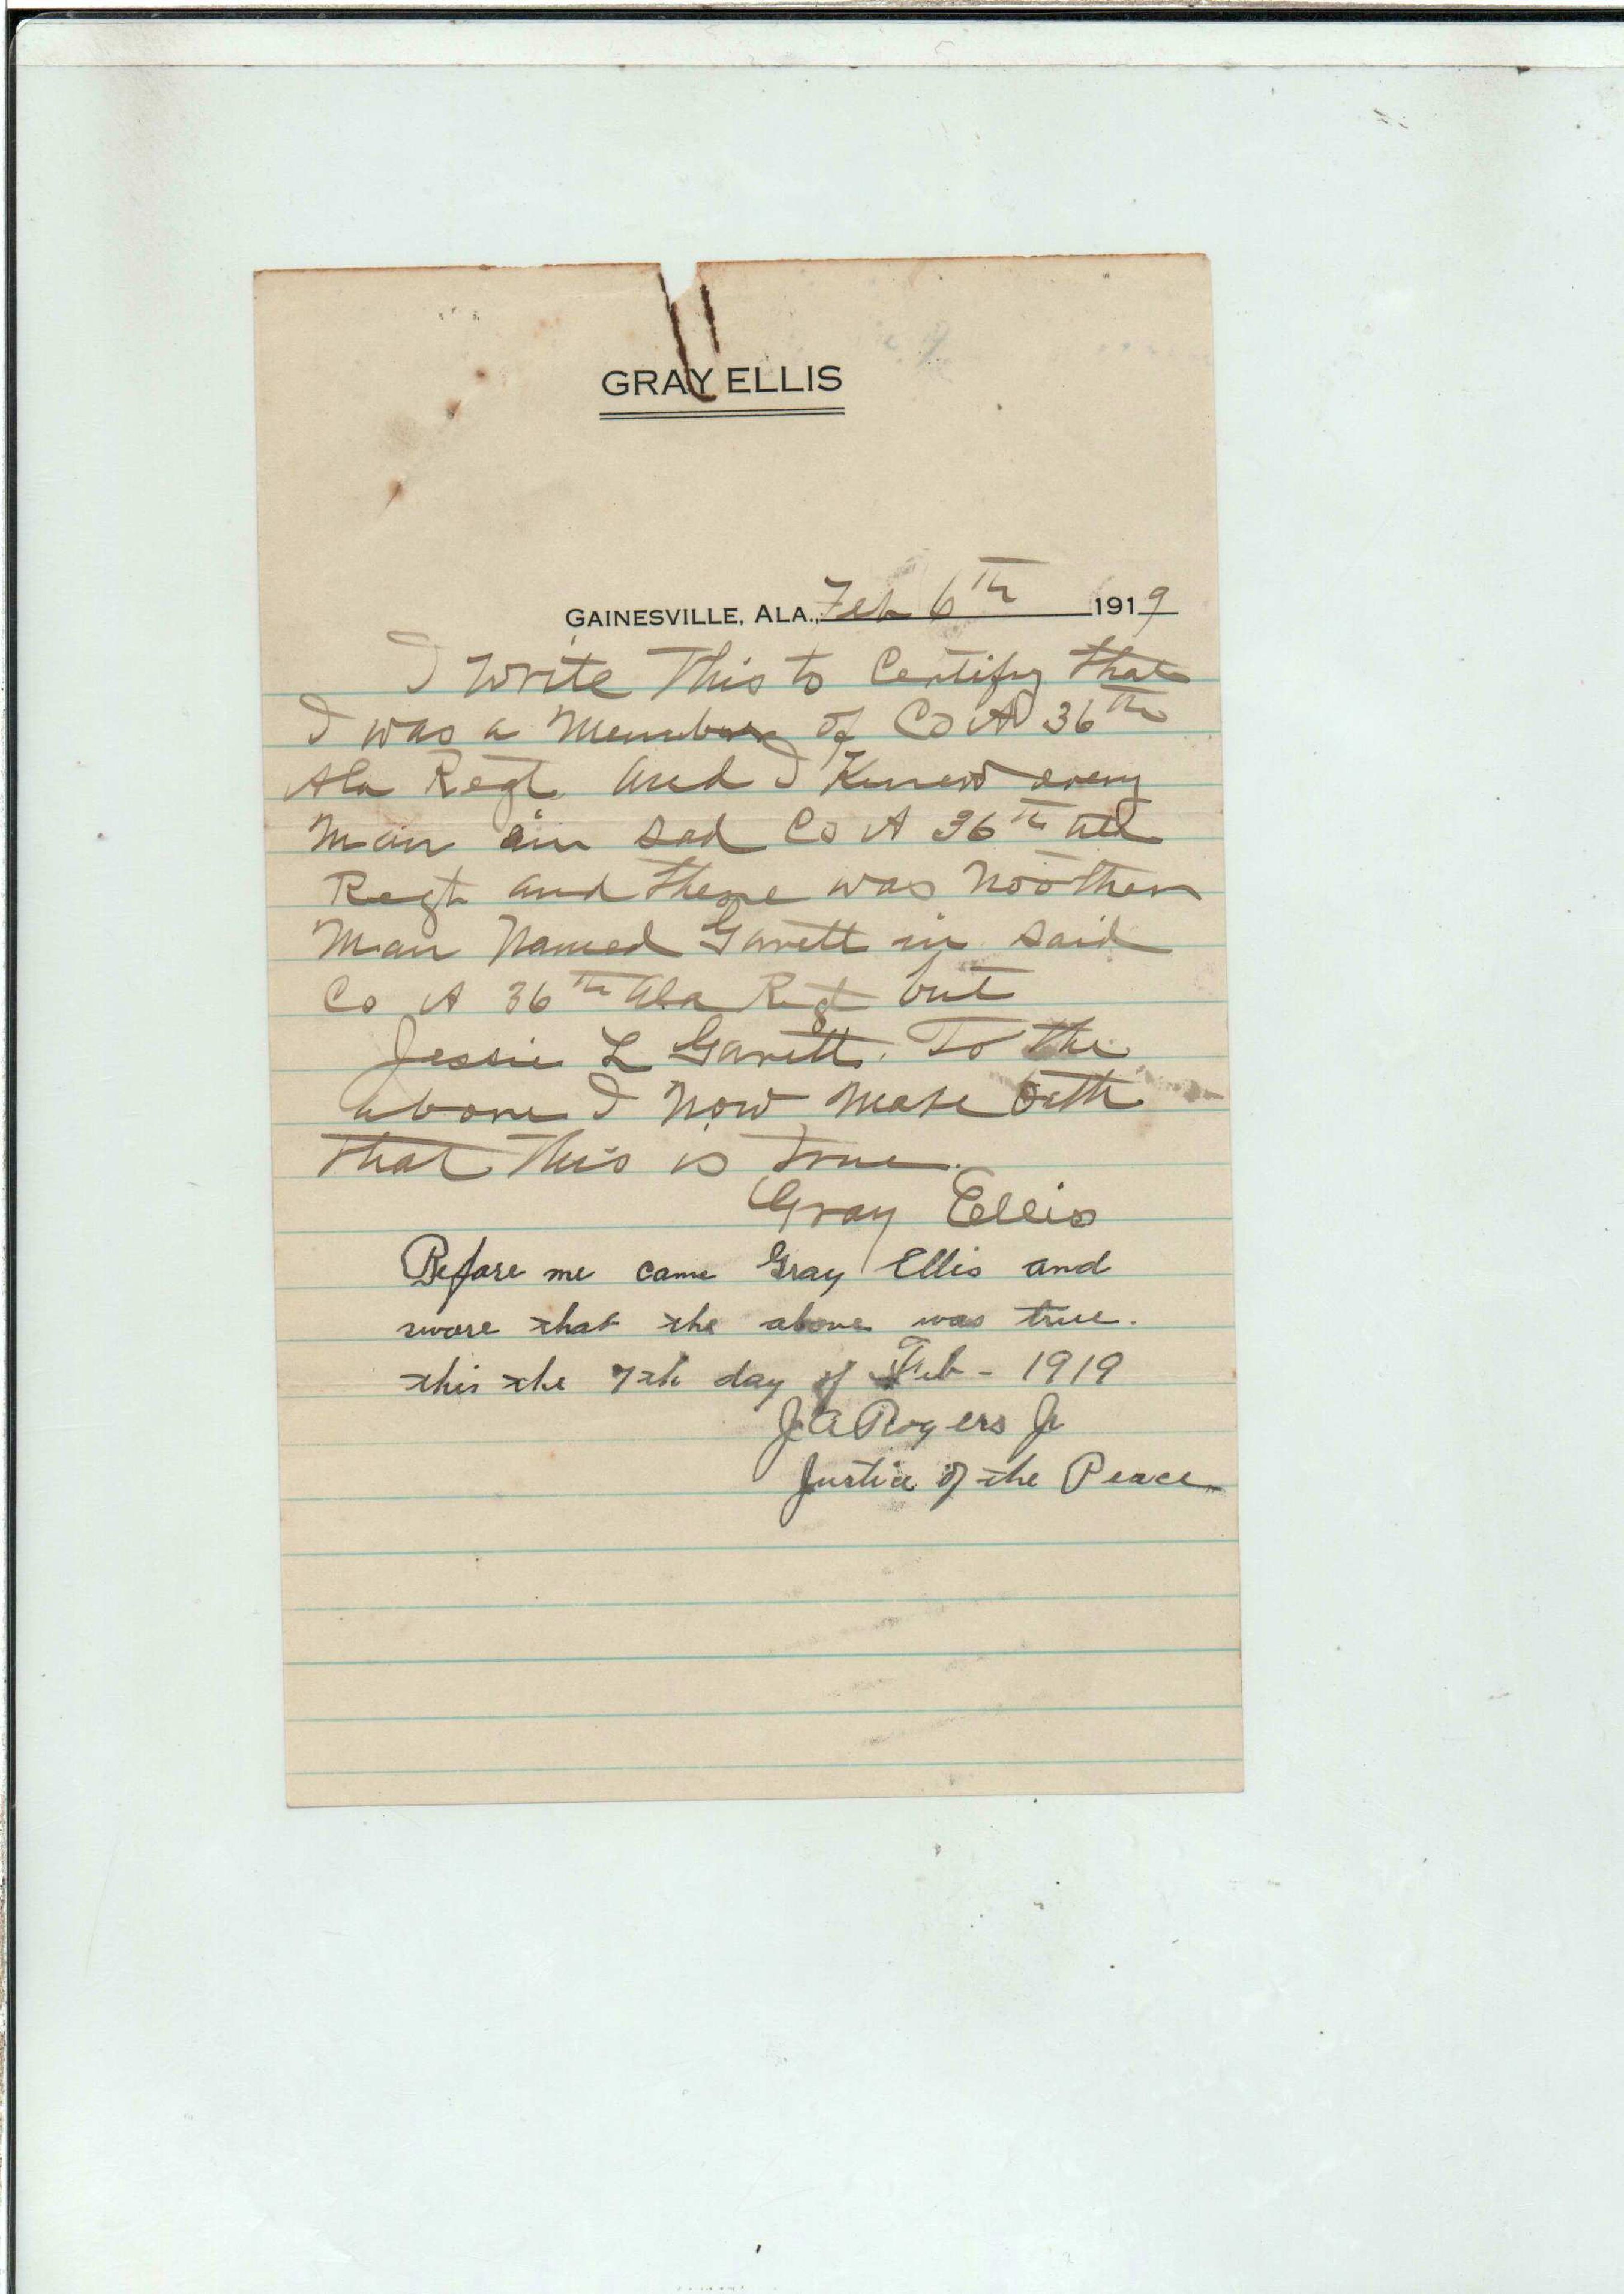 GRAY ELLIS
GAINESVILLE, ALA., Feb 6th 1919
I Write This to Certify that
I was a Member of Co A 36th
Ala Regt and I Knew every
Man in sad Co A 36th
Regt and there was No other
Man Named Garrett in said
Co A 36th Ala Regt but
Jessie L Garrett. To the
above I Now Make Oath
that This is True.
Gray Ellis
Before me came Gray Ellis and
swore that the above was true.
this the 7th day of Feb - 1919
J. A Rogers Jr
Justice of the Peace